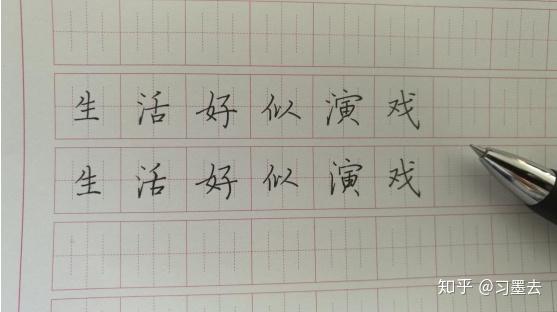 生活好似演戏
生活好似演戏
知乎 @习墨去